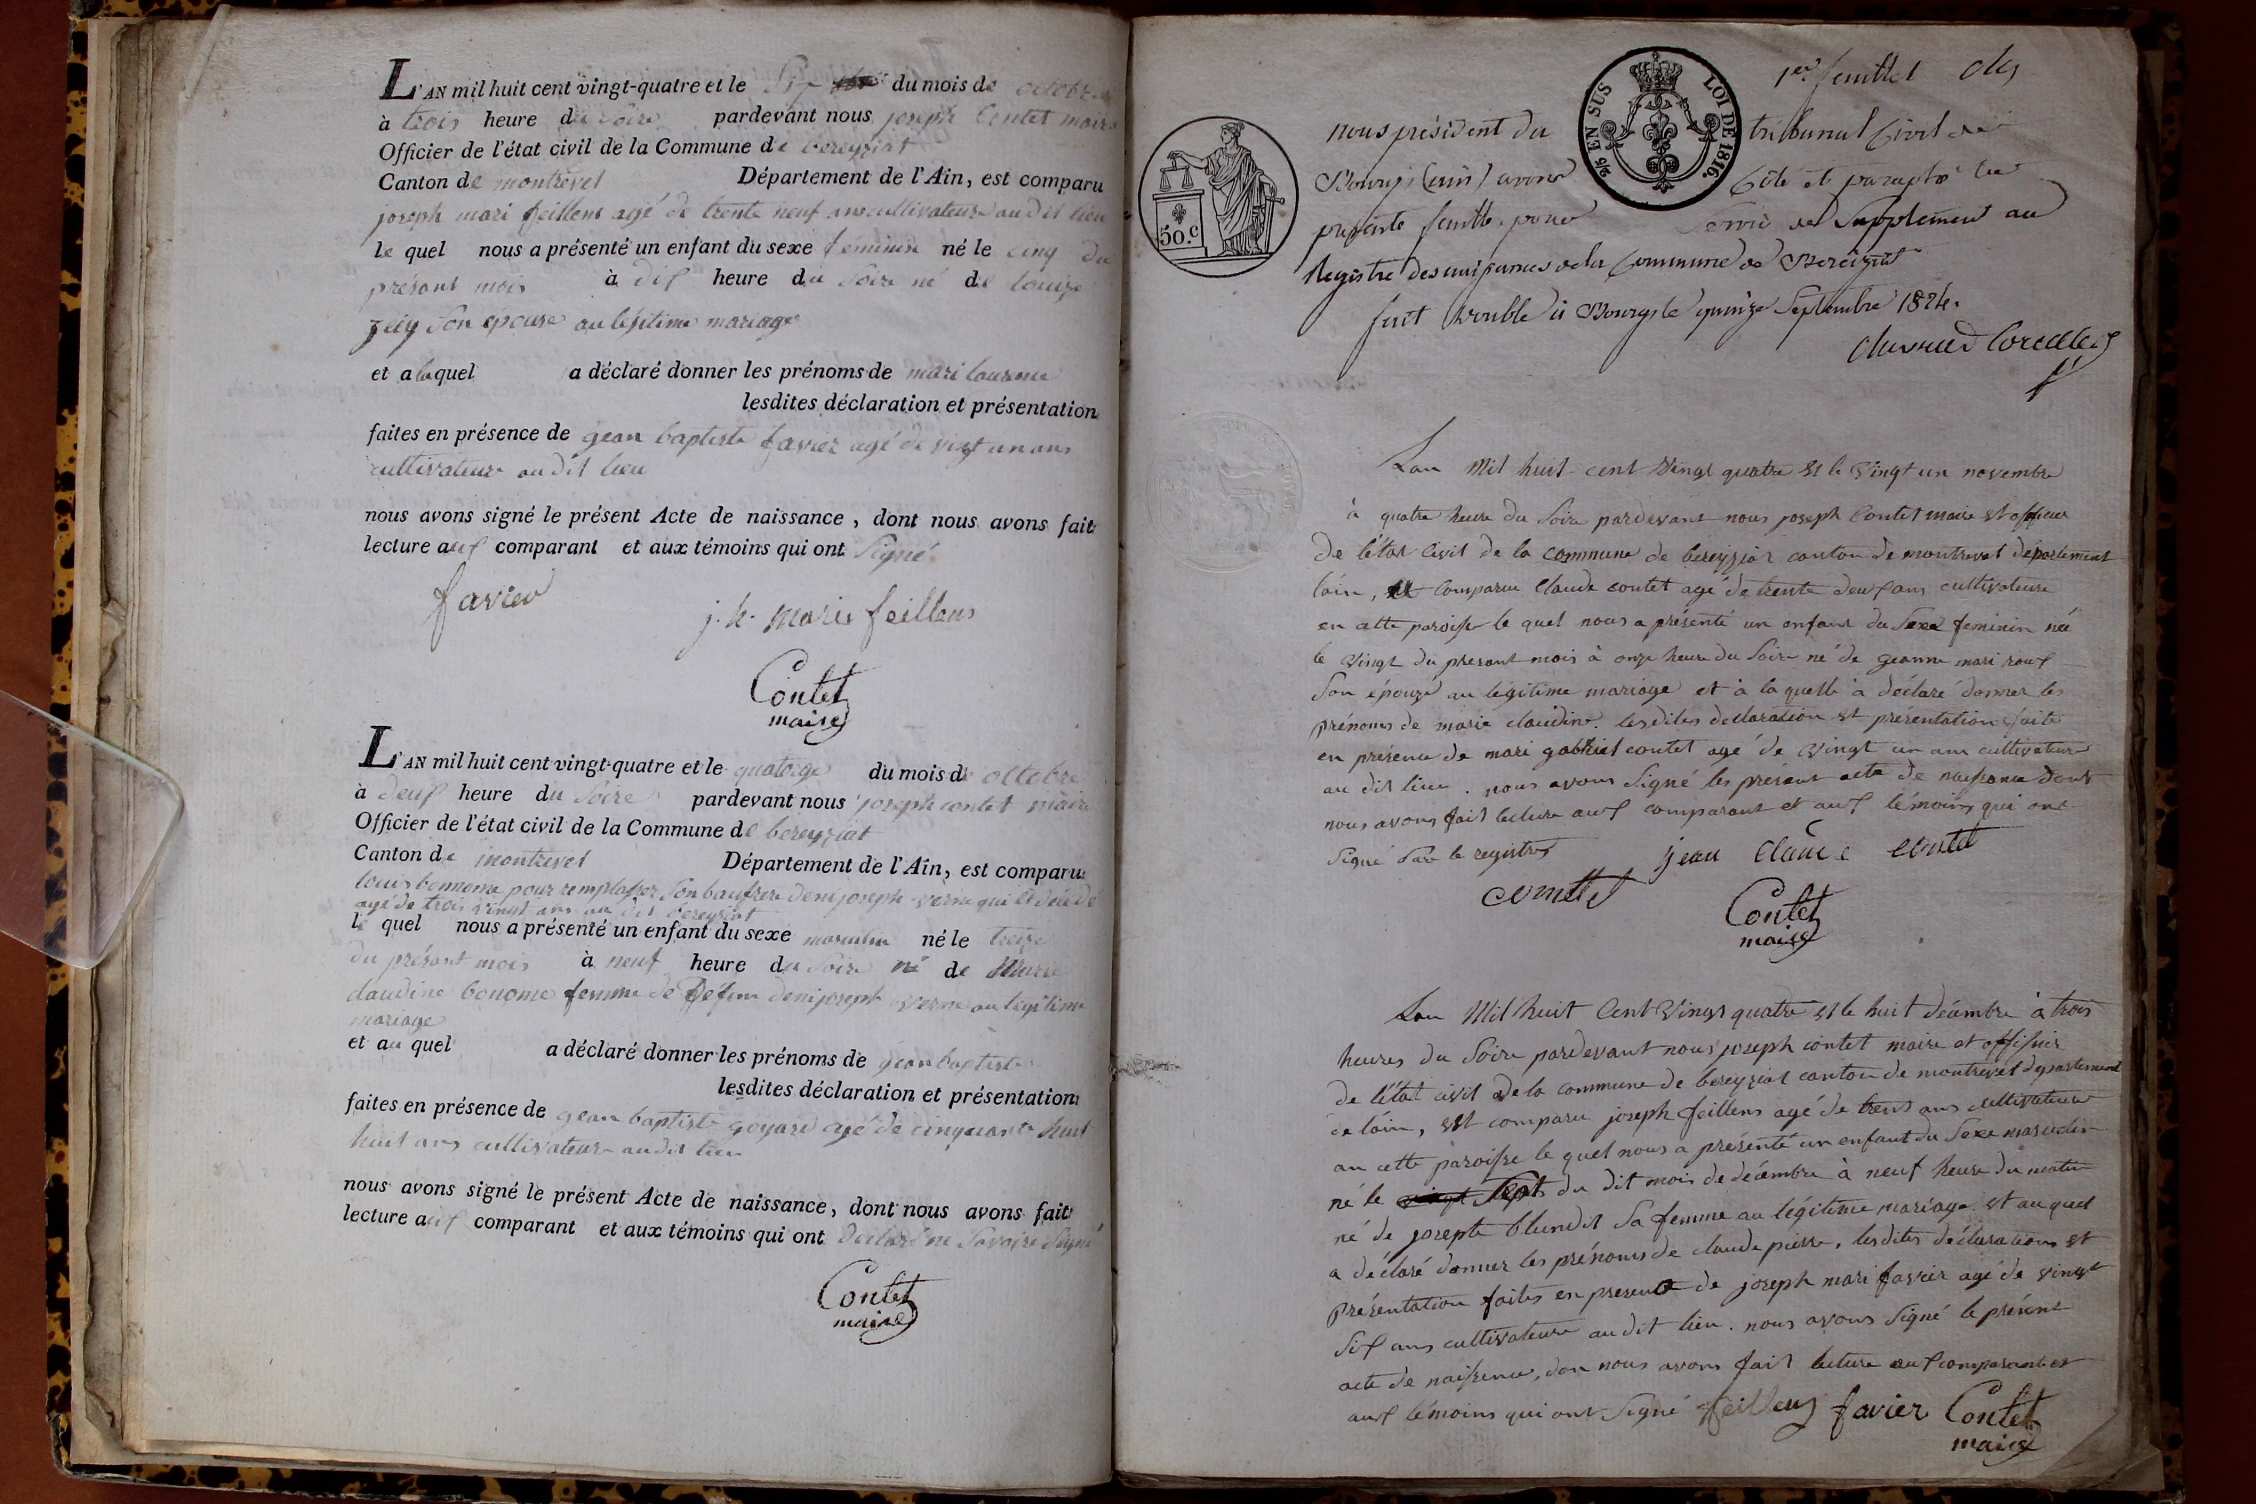 L'AN mil huit cent vingt-quatre et le six du mois de octobre
à trois heure du soire pardevant nous joseph Contet maire
Officier de l'état civil de la Commune de bereyziat
Canton de montrevel Département de l'Ain, est comparu
joseph mari feillens agé de trente neuf ans cultivateur au dit lieu
le quel nous a présenté un enfant du sexe féminin né le cinq du
presant mois à dix heure du soire né de louize
son epouse au légitime mariage
et a laquel a déclaré donner les prénoms de mari
lesdites déclaration et présentation
faites en présence de gean baptiste favier agé de vingt un ans
cultivateur au dit lieu
nous avons signé le présent Acte de naissance, dont nous avons fait
lecture aux comparant et aux témoins qui ont signé
favier
j.h. marie feillens
Contet
maire
L'AN mil huit cent vingt-quatre et le quatorze du mois de octobre
à deux heure du soire pardevant nous joseph contet maire
Officier de l'état civil de la Commune de bereyziat
Canton de montrevel Département de l'Ain, est comparu
louis bonnome pour remplasser son baufrere deni joseph verne qui est décédé
agé de trois vingt ans au dit bereyziat
le quel nous a présenté un enfant du sexe masculin né le treize
du présant mois à neuf heure du soire né de Marie
claudine bonome femme de defun deni joseph verne au légitime
mariage
et au quel a déclaré donner les prénoms de gean baptiste
lesdites déclaration et présentation
faites en présence de gean baptiste goyard agé de cinquante huit
huit ans cultivateur au dit lieu
nous avons signé le présent Acte de naissance, dont nous avons fait
lecture aux comparant et aux témoins qui ont déclaré ne savoire signé
Contet
maire
1er feuillet
2/5 EN SUS LOI DE 1816.
50.c
nous président du tribunal Civil de
Bourg (ain) avons Côté et paraphé la
présente feuille pour servir de Supplément au
Registre des naissances de la Commune de Bereiziat
fait double à Bourg le quinze Septembre 1824.
Lan Mil huit cent vingt quatre et le vingt un novembre
à quatre heure du soire pardevant nous joseph Contet maire et officier
de létat Civil de la commune de bereyziat canton de montrevel département
lain, est comparu claude contet agé de trente deux ans cultivateur
en cette paroisse le quel nous a présenté un enfant du Sexe feminin née
le vingt du presant mois à onze heure du soire né de geanne mari roux
son épouze au légitime mariage et à la quelle à déclaré donner les
prénoms de marie claudine. lesdites declaration et présentation faite
en présence de mari gabriel contet agé de vingt un ans cultivateur
au dit lieu. nous avons signé les présant acte de naissance dont
nous avons fait lecture aux comparant et aux témoins qui ont
signé sur le registres
jean Claude contet
comtet
Contet
maire
Lan Mil huit Cent Vingt quatre et le huit décembre à trois
heures du Soire pardevant nous joseph contet maire et officier
de létat civil de la commune de bereyziat canton de montrevel departement
de lain, est comparu joseph feillens agé de trent ans cultivateur
an cette paroisse le quel nous a présenté un enfant du Sexe masculin
né le vingt sept du dit mois de décembre à neuf heure du matin
né de josepte blundet sa femme au légitime mariage. et au quel
a déclaré donner les prénoms de claude pierre, lesdites déclarations et
présentation faites en presence de joseph mari favier agé de vingt
six ans cultivateur au dit lieu. nous avons signé le présent
acte de naissence, don nous avons fait lecture aux comparant et
aux témoins qui ont signé feillens favier Contet
maire